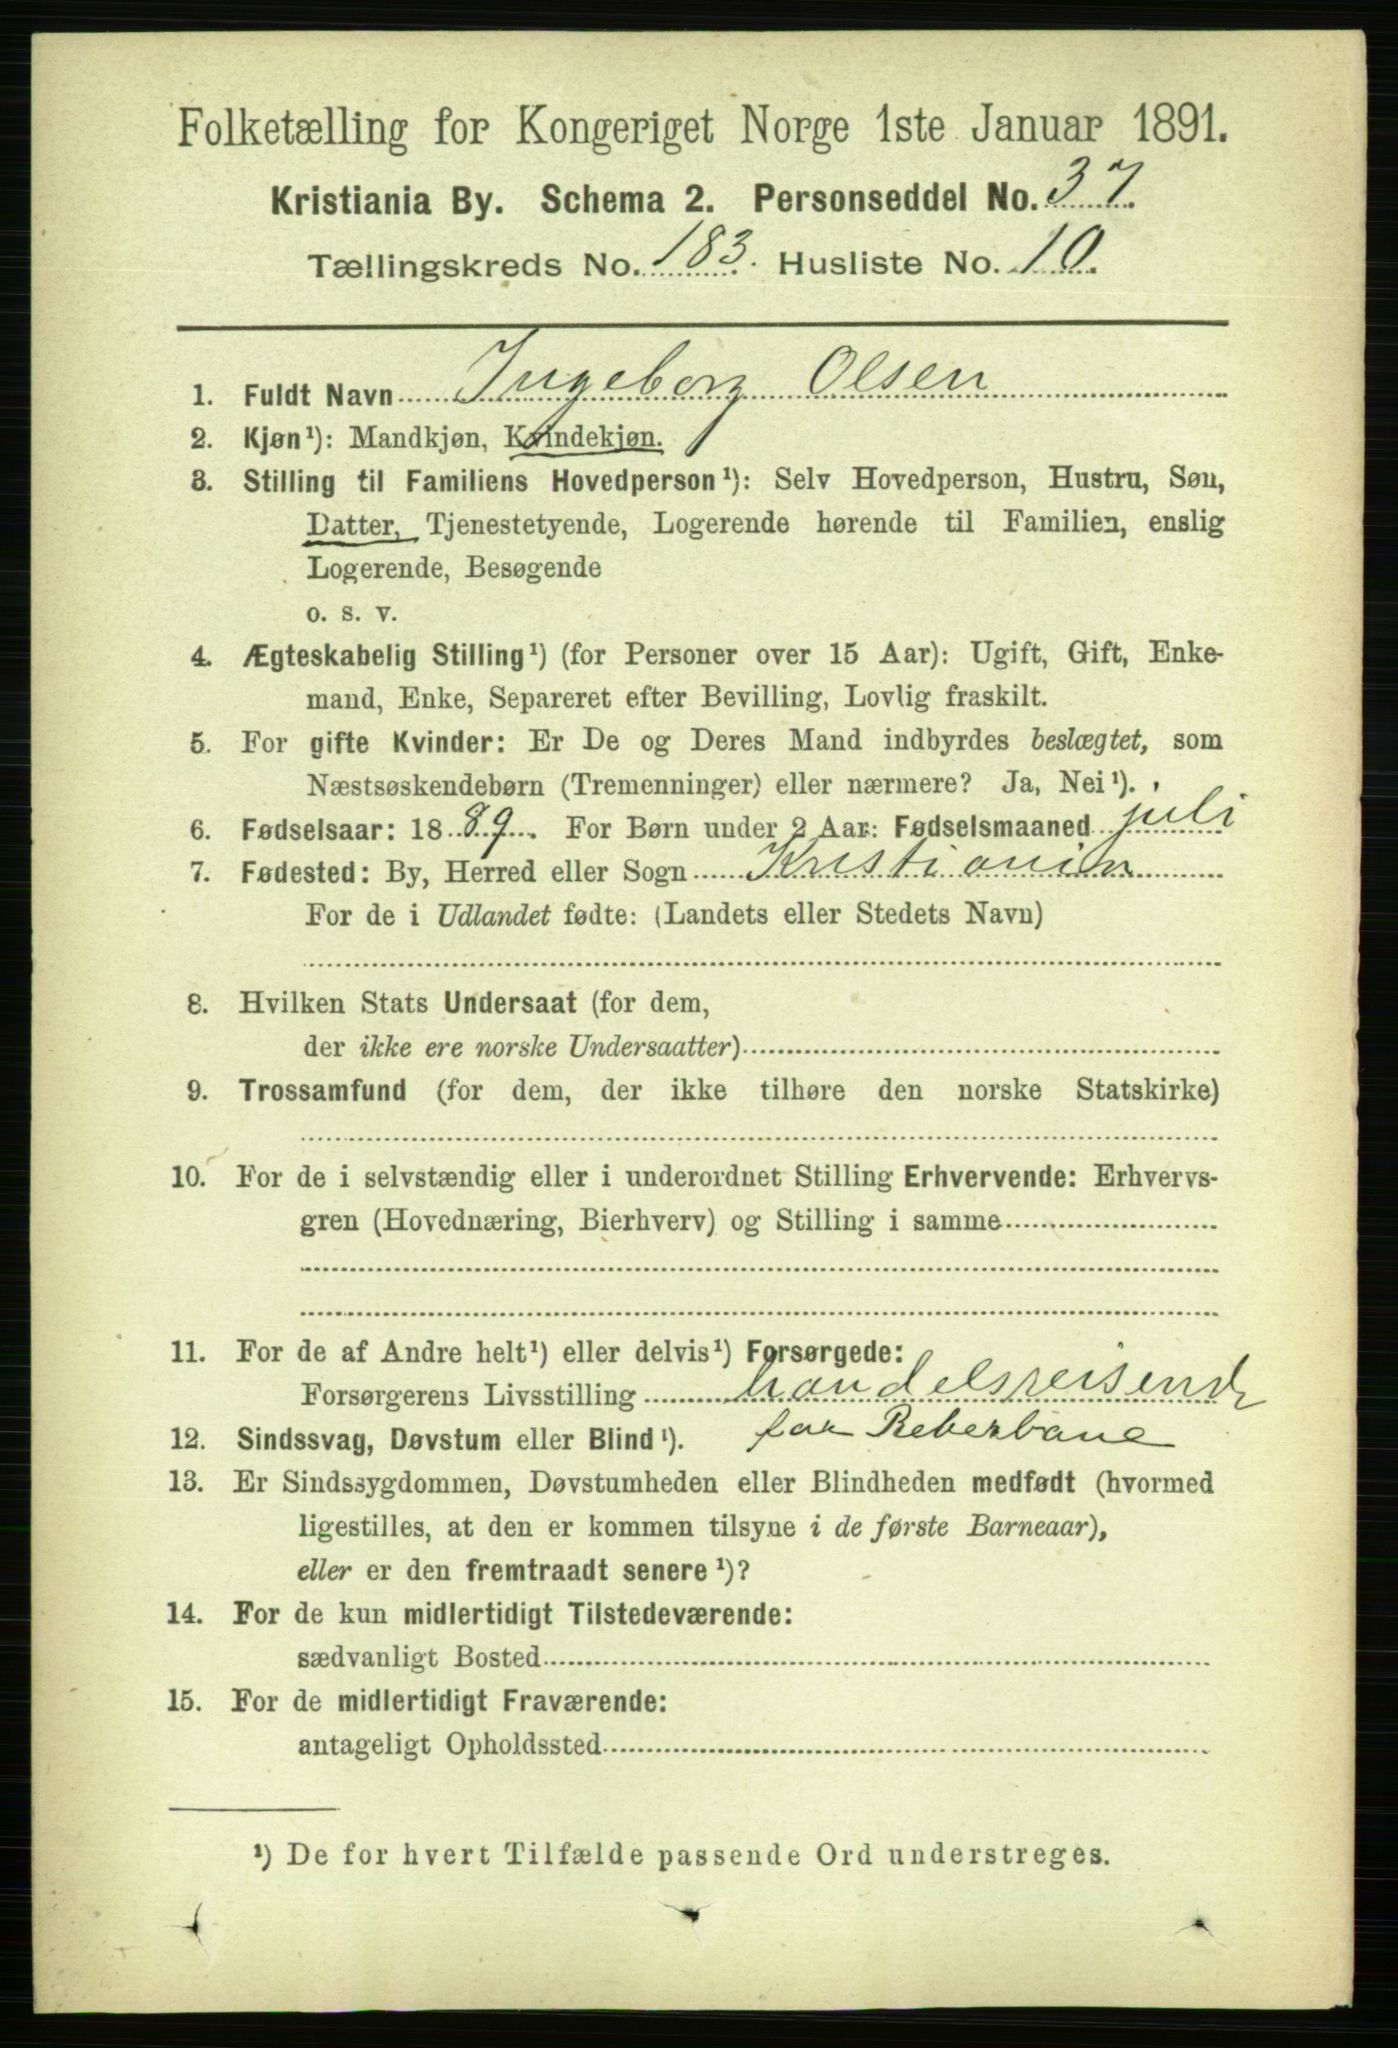 Folketælling for Kongeriget Norge 1ste Januar 1891.
Kristiania By. Schema 2. Personseddel No. 37.
Tællingskreds No. 183. Husliste No. 10.
1. Fuldt Navn Ingeborg Olsen
2. Kjøn¹): Mandkjøn, Kvindekjøn.
3. Stilling til Familiens Hovedperson¹): Selv Hovedperson, Hustru, Søn,
Datter, Tjenestetyende, Logerende hørende til Familien, enslig
Logerende, Besøgende
o. s. v.
4. Ægteskabelig Stilling¹) (for Personer over 15 Aar): Ugift, Gift, Enke-
mand, Enke, Separeret efter Bevilling, Lovlig fraskilt.
5. For gifte Kvinder: Er De og Deres Mand indbyrdes beslægtet, som
Næstsøskendebørn (Tremenninger) eller nærmere? Ja, Nei¹).
6. Fødselsaar: 1889. For Børn under 2 Aar: Fødselsmaaned juli
7. Fødested: By, Herred eller Sogn Kristiania
For de i Udlandet fødte: (Landets eller Stedets Navn)
8. Hvilken Stats Undersaat (for dem,
der ikke ere norske Undersaatter)
9. Trossamfund (for dem, der ikke tilhøre den norske Statskirke)
10. For de i selvstændig eller i underordnet Stilling Erhvervende: Erhvervs-
gren (Hovednæring, Bierhverv) og Stilling i samme
11. For de af Andre helt¹) eller delvis¹) Forsørgede:
Forsørgerens Livsstilling handelsreisende
12. Sindssvag, Døvstum eller Blind¹). for Reberbane
13. Er Sindssygdommen, Døvstumheden eller Blindheden medfødt (hvormed
ligestilles, at den er kommen tilsyne i de første Barneaar),
eller er den fremtraadt senere¹)?
14. For de kun midlertidigt Tilstedeværende:
sædvanligt Bosted
15. For de midlertidigt Fraværende:
antageligt Opholdssted
¹) De for hvert Tilfælde passende Ord understreges.